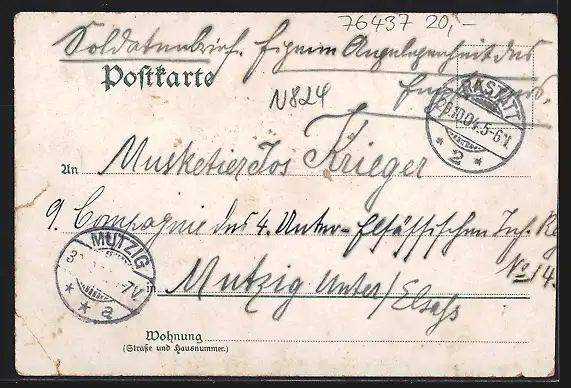 76437 20,-
Soldatenbrief. Eigene Angelegenheit des
Postkarte
Empfängers.
N824
RASTATT
29.10.04.5-6V.
* 2 *
An Musketier Jos Krieger
9. Compagnie des 4. Unter-Elsässischen Inf. Reg
No 143
MUTZIG
-7V.
* * a
in Mutzig Unter/Elsass
Wohnung
(Straße und Hausnummer.)